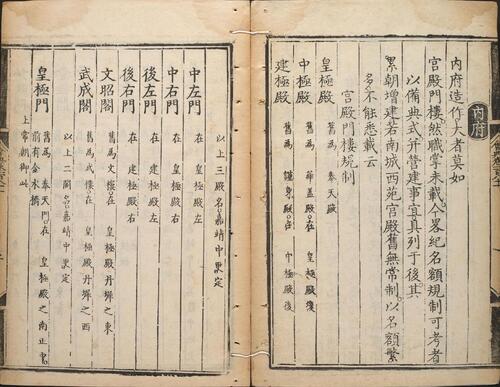 內府
內府造作大者莫如
宮殿門樓然職掌未載今畧紀名額規制可考者
以備典式并營建事宜具列于後其
累朝增建若南城西苑宮殿舊無常制以名額繁
多不能悉載云
宮殿門樓規制
皇極殿 舊爲 奉天殿
中極殿 舊爲 華蓋殿在 皇極殿後
建極殿 舊爲 謹身殿在 中極殿後
以上三殿名嘉靖中更定
中左門 在 皇極殿左
中右門 在 皇極殿右
後左門 在 建極殿左
後右門 在 建極殿右
文昭閣 舊爲文樓在 皇極殿丹墀之東
武成閣 舊爲武樓在 皇極殿丹墀之西
以上二閣名嘉靖中更定
皇極門 舊爲 奉天門在 皇極殿之南正東
前有金水橋
上常朝御此